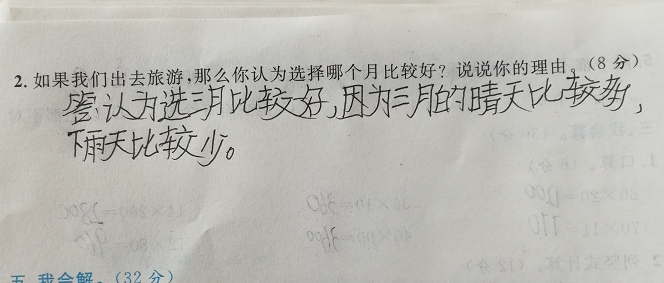 2. 如果我们出去旅游,那么你认为选择哪个月比较好? 说说你的理由。(8 分)
答:认为选三月比较好,因为三月的晴天比较多,
下雨天比较少。
五、我会解。(32 分)